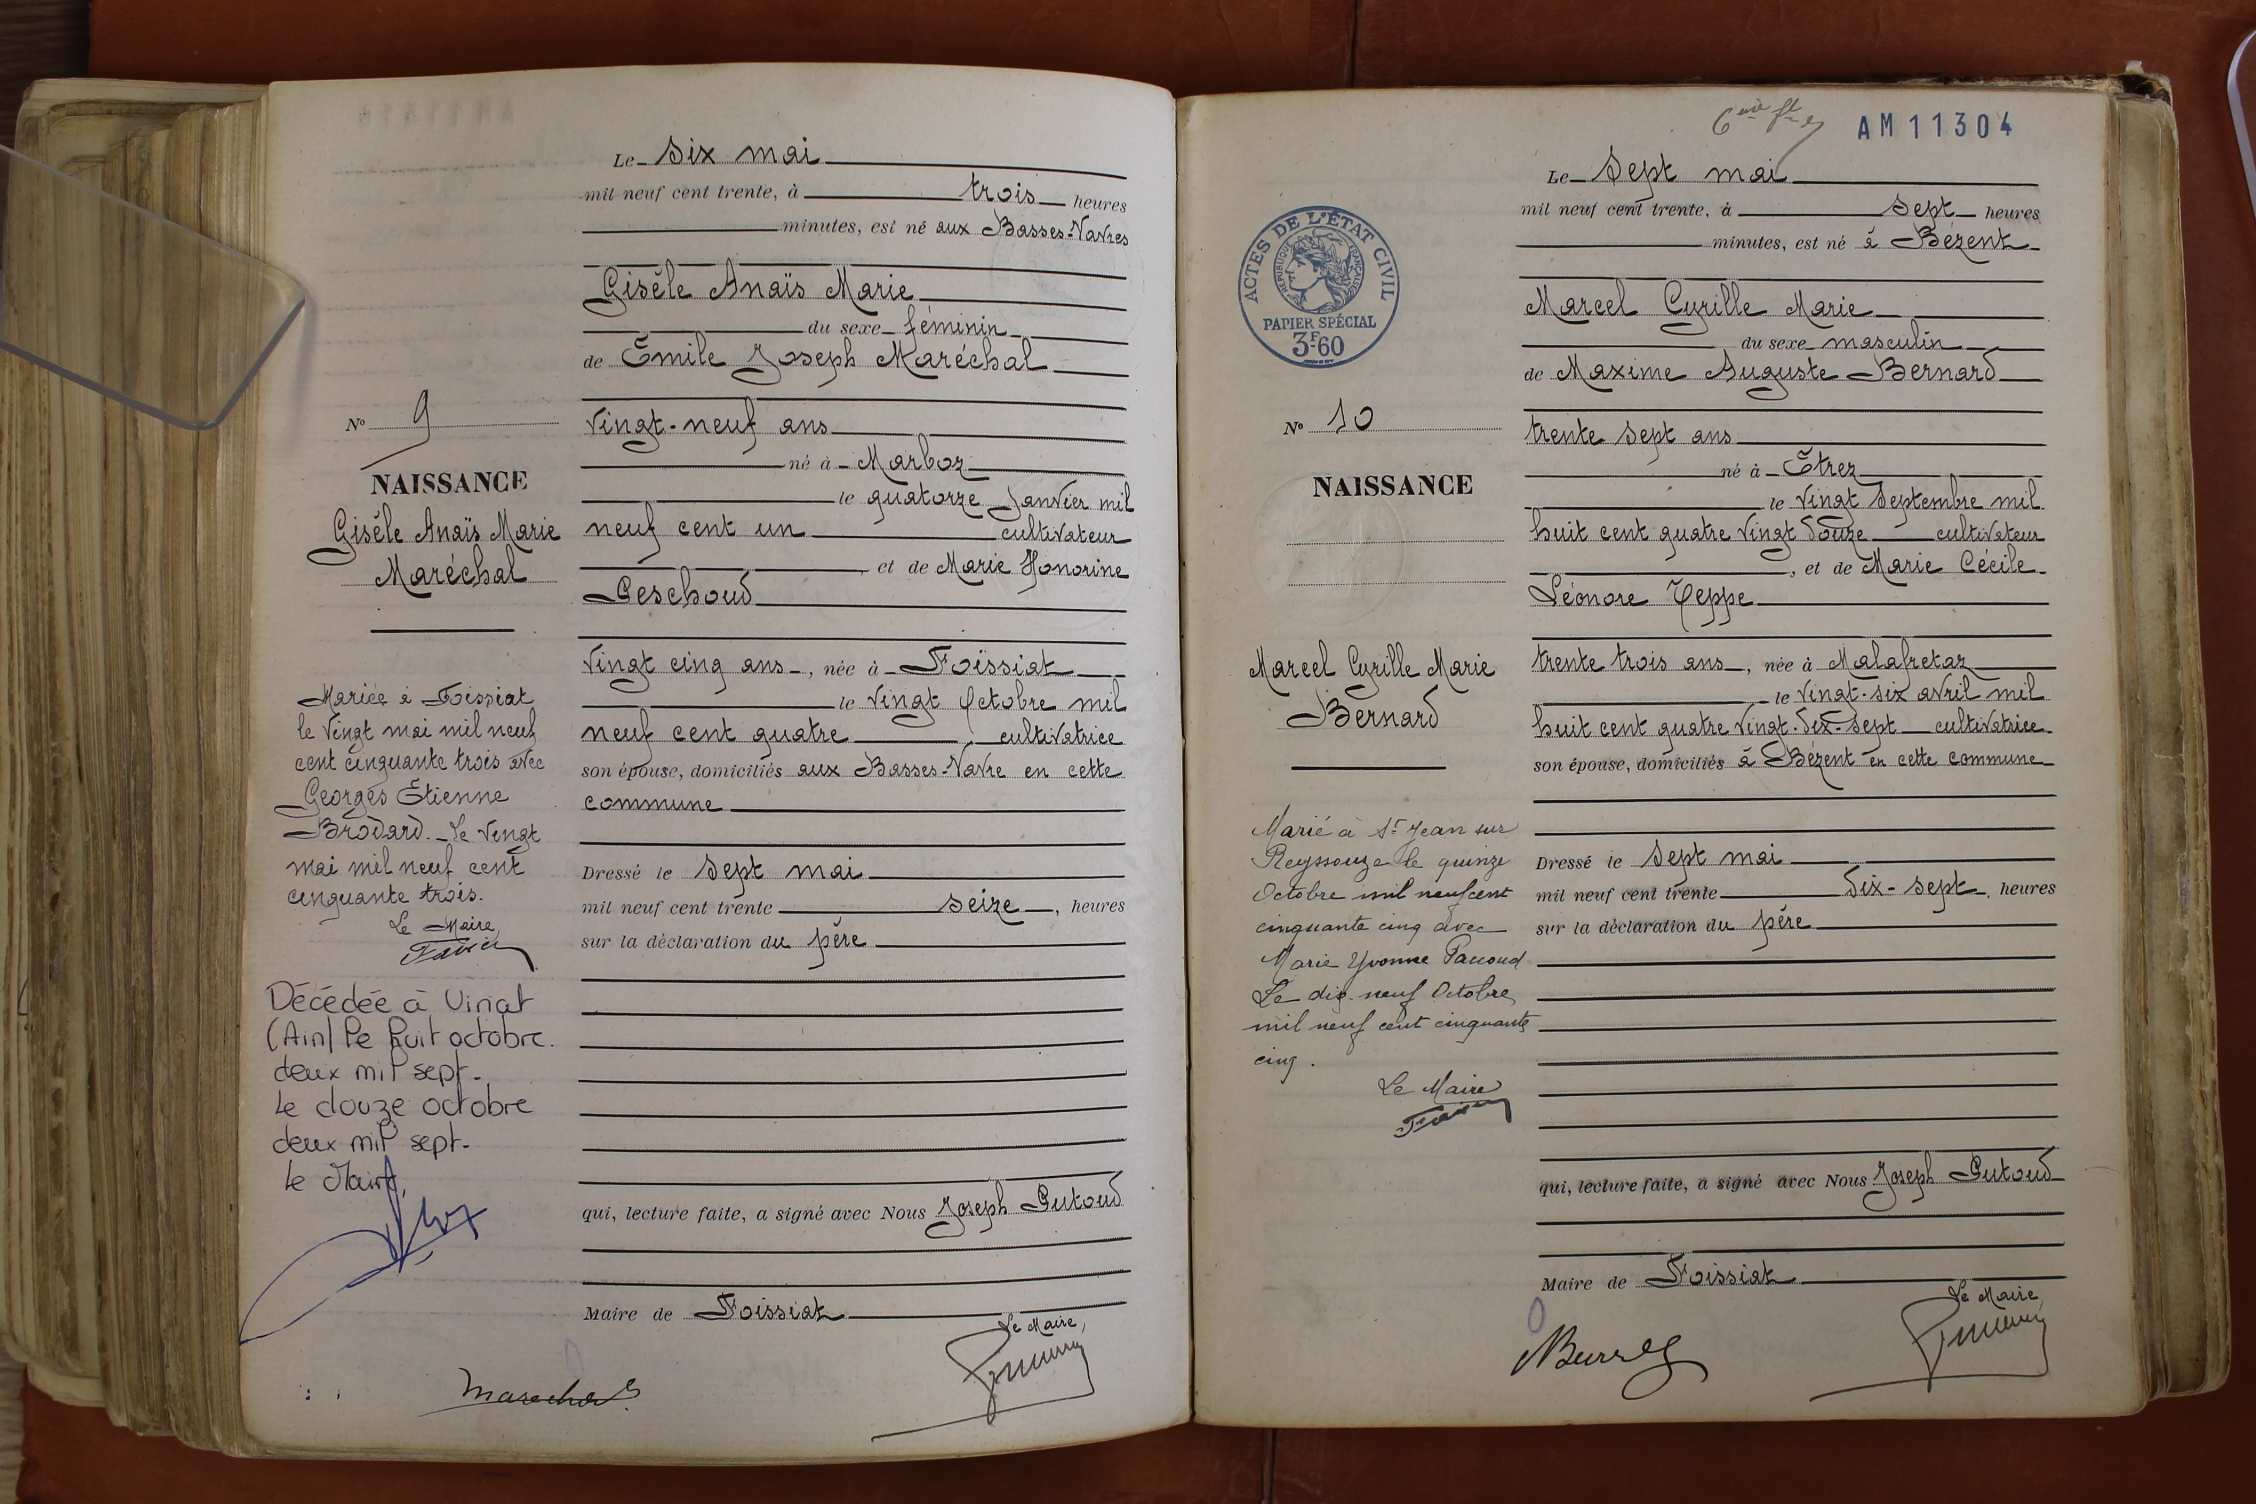 Le six mai
mil neuf cent trente, à trois heures
minutes, est né aux Basses-Navres
Gisèle Anaïs Marie
du sexe féminin
de Émile Joseph Maréchal
vingt-neuf ans
né à Marboz
le quatorze Janvier mil
neuf cent un cultivateur
, et de Marie Honorine
Peschoud
vingt cinq ans, née à Foissiat
le vingt Octobre mil
neuf cent quatre, cultivatrice
son épouse, domiciliés aux Basses-Navre en cette
commune
Dressé le sept mai
mil neuf cent trente seize, heures
sur la déclaration du père
qui, lecture faite, a signé avec Nous Joseph Putoud
Maire de Foissiat
Le Maire,
Marechal
No 9
NAISSANCE
Gisèle Anaïs Marie
Maréchal
Mariée à Foissiat
le vingt mai mil neuf
cent cinquante trois avec
Georges Étienne
Brodard. Le vingt
mai mil neuf cent
cinquante trois.
Le Maire,
Décédée à Viriat
(Ain) le huit octobre
deux mil sept.
Le douze octobre
deux mil sept.
Le Maire,
AM11304
Le sept mai
mil neuf cent trente, à sept heures
minutes, est né à Bézent
Marcel Cyrille Marie
du sexe masculin
de Maxime Auguste Bernard
trente sept ans
né à Étrez
le vingt Septembre mil
huit cent quatre vingt douze cultivateur
, et de Marie Cécile
Léonore Teppe
trente trois ans, née à Malafretaz
le vingt-six avril mil
huit cent quatre vingt-dix-sept cultivatrice
son épouse, domiciliés à Bézent en cette commune
Dressé le sept mai
mil neuf cent trente dix-sept, heures
sur la déclaration du père
qui, lecture faite, a signé avec Nous Joseph Putoud
Maire de Foissiat
Le Maire,
ACTES DE L'ÉTAT CIVIL
RÉPUBLIQUE FRANÇAISE
PAPIER SPÉCIAL
3F60
No 10
NAISSANCE
Marcel Cyrille Marie
Bernard
Marié à St Jean sur
Reyssouze le quinze
Octobre mil neuf cent
cinquante cinq avec
Marie Yvonne Pacoud
Le dix-neuf Octobre
mil neuf cent cinquante
cinq.
Le Maire